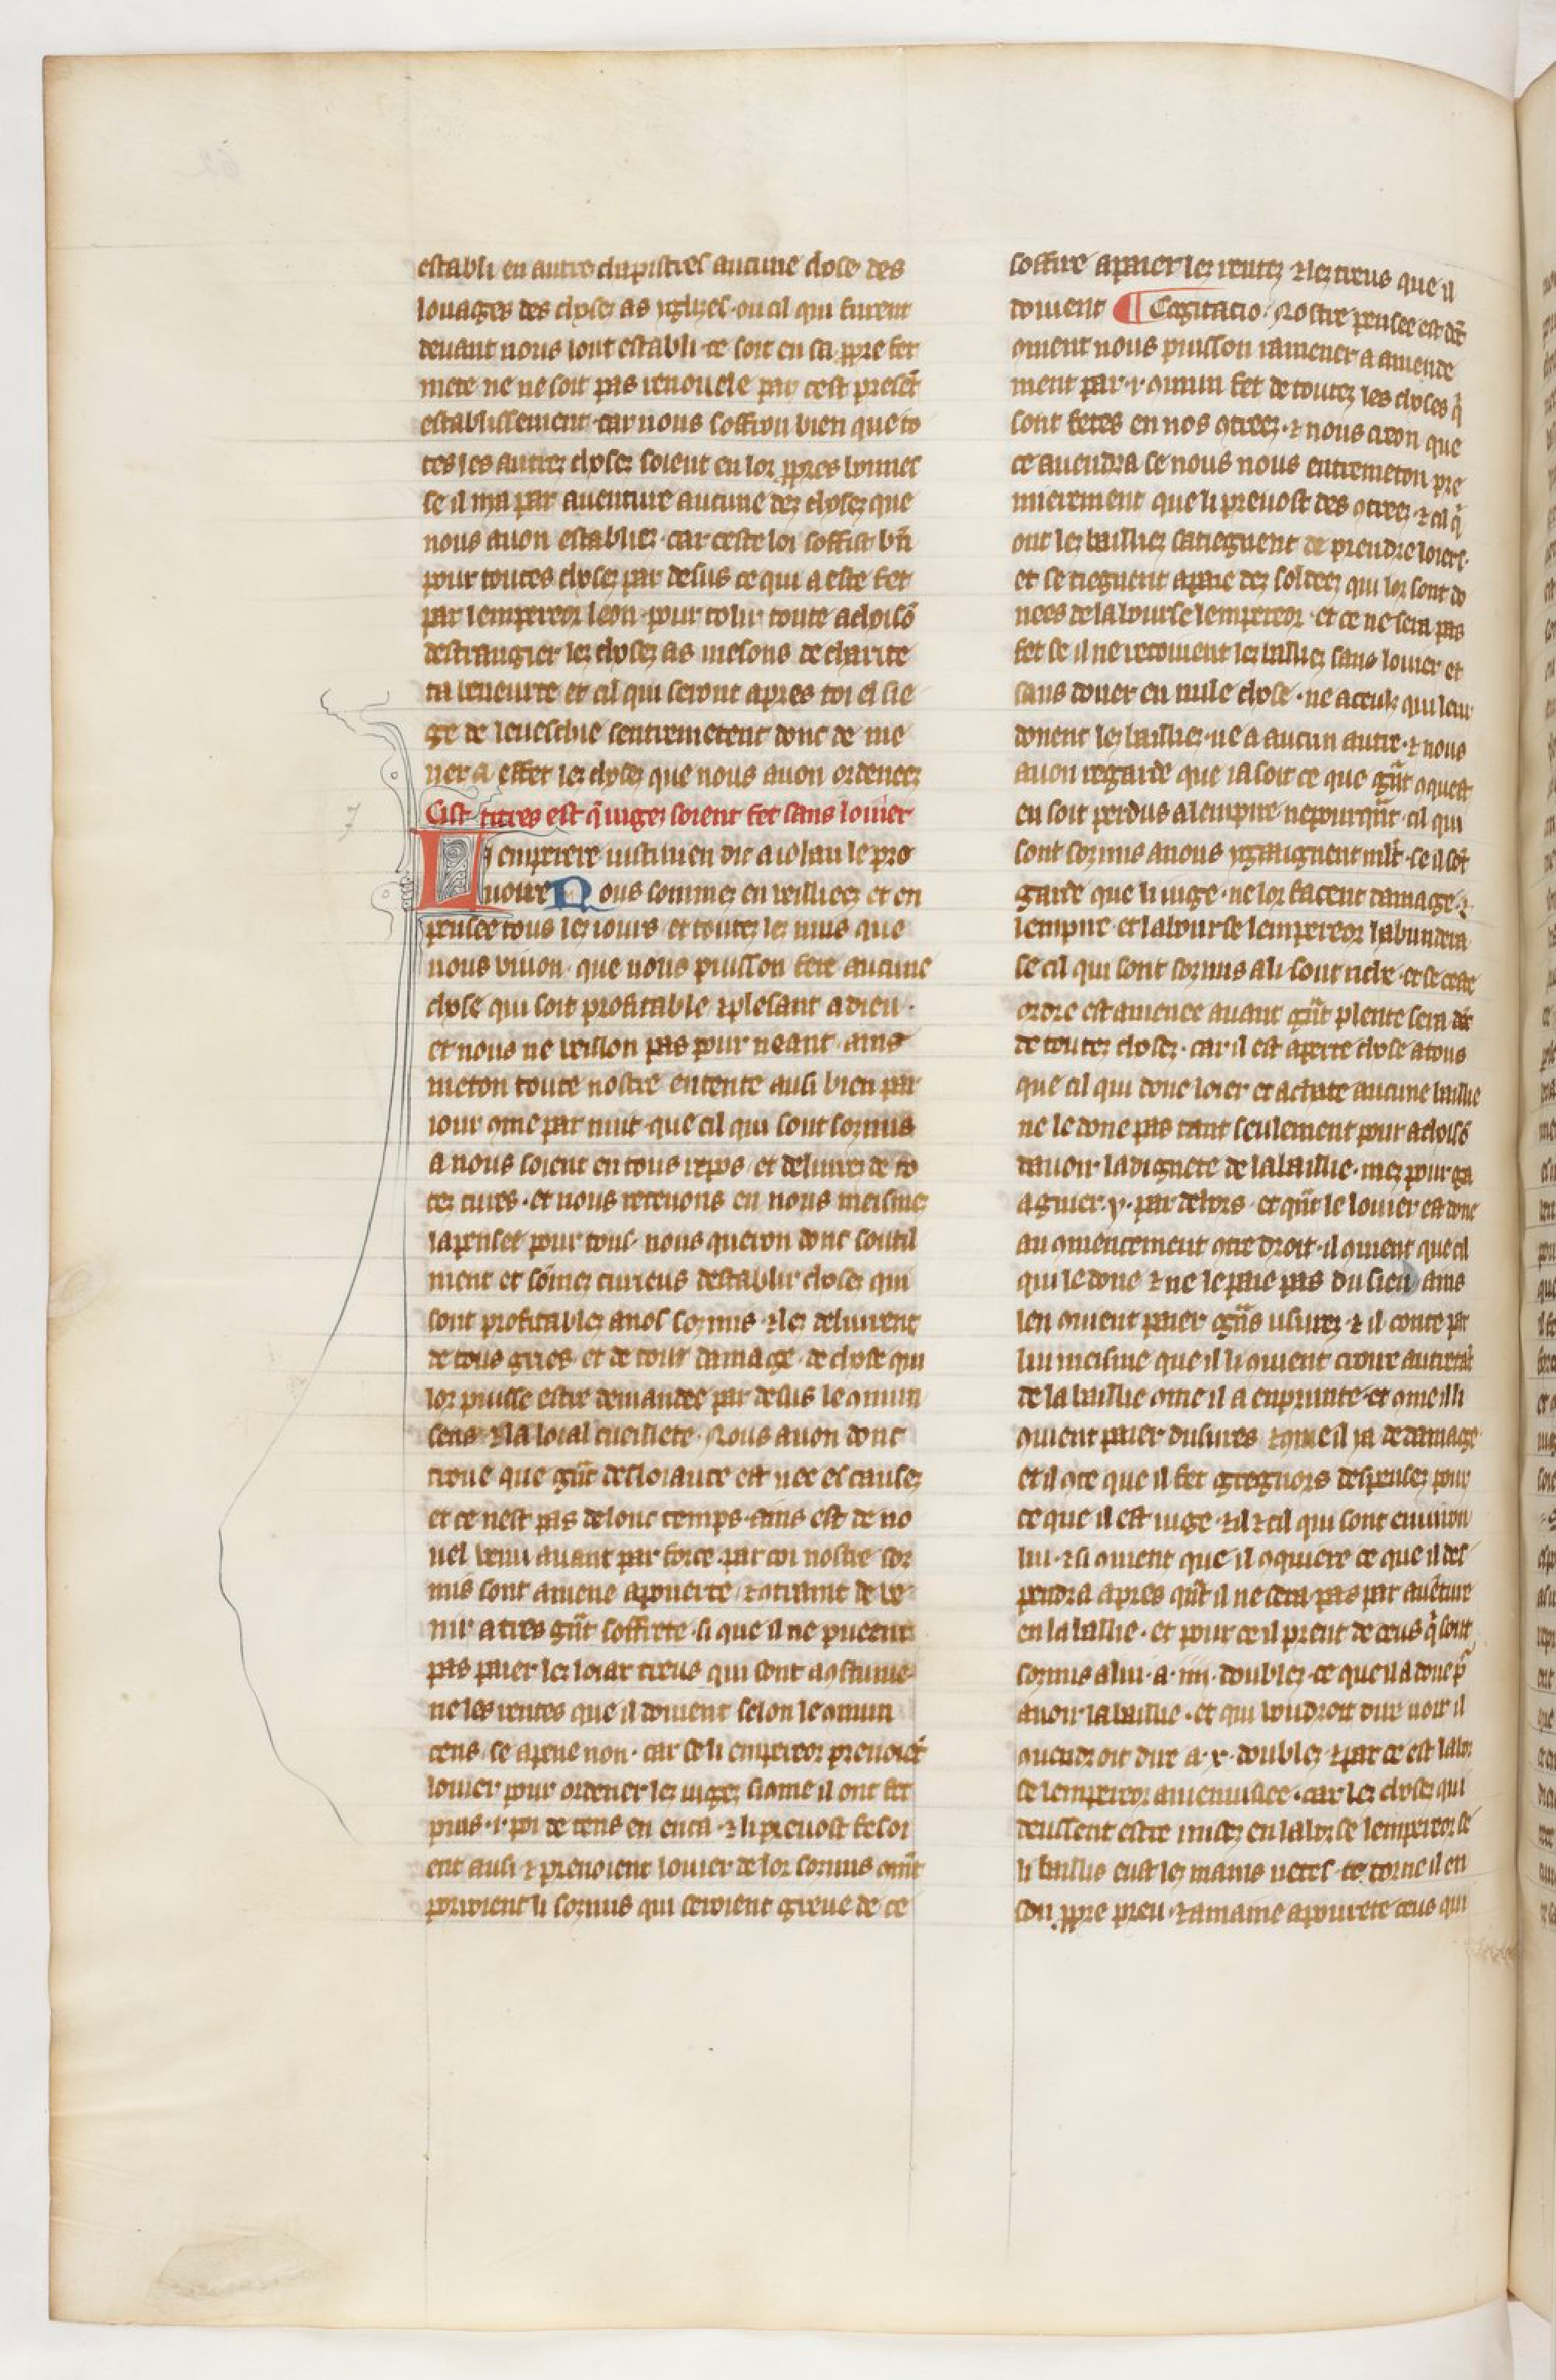 establi en autre chapistres aucune chose des
louages des choses as yglyses · ou cil qui furent
deuant nous iont establi · ce soit en sa ꝓpre fer
mete ne ne soit pas renouele par cest presēt
establissement · car nous soffron bien que to
tes les autrez chosez soient en lor ꝓpres bonnes
se il ni a par auenture aucune dez chosez que
nous auon establiez · car ceste loi soffist bn̄
pour toutes chosez par desus ce qui a este fet
par lempereor leon · pour tolir toute achoisō
destrangier lez chosez as mesons de charite
ta beneurte et cil qui seront apres toi el sie
ge de leueschie sentremetent donc de me
ner a effet lez chosez que nous auon ordenees
Cist titres est q̄ iugez soient fet sans louier
Lemperere iustinien dit a iohan le pro
uoire Nous sommez en veilliees et en
pensee tous lez iours et toutez lez nuis que
nous viuon · que nous puisson fere aucune
chose qui soit profitable ⁊ plesant a dieu ·
et nous ne veillon pas pour neant · ains
meton toute nostre entente ausi bien par
iour ꝯme par nuit · que cil qui sont sozmis
a nous soient en tous repos · et deliurez de to
tez cures · et nous retenons en nous meismez
la penset pour tous · nous queron donc soutil
ment et sōmez curieus destablir chosez qui
sont profitablez a nos sozmis · ⁊ lez deliurent
de tous gries · et de tout damage · de chose qui
lor puisse estre demandee par desus le ꝯmun
sens · ⁊ la loial cueillete · Nous auon donc
troue que gn̄t desloiaute est nee es causez
et ce nest pas de lonc temps · ains est de no
uel venu auant par force · par coi nostre soz
mis sont amene a pouerte · ⁊ ꝯtraint de ve
nir a tres gn̄t soffrete · si que il ne pueent
pas paier lez loiax treus qui sont acostume
ne les rentes que il doiuent selon le ꝯmun
cens · se a peine non · car se li empereor prenoiēt
louier pour ordener lez iugez si ꝯme il ont fet
puis · i · poi de tens en enca · ⁊ li preuost fesoi
ent ausi ⁊ prenoient louier de lor sozmis ꝯmēt
porroient li sozmis qui seroient greue de ce
soffire a paier lez rentez ⁊ lez treus que il
doiuent ¶ Cogitacio · Nostre pensee est dōt
ꝯment nous puisson ramener a amende
ment par · i · ꝯmun fet de toutez les choses q̄
sont fetes en nos ꝯtreez · ⁊ nous creon que
ce auendra se nous nous entremeton pre
mierement que li preuost des ꝯtreez · ⁊ cil q̄
ont lez bailliez satiegnent de prendre loiers ·
et se tiegnent a paie dez soldeez qui lor sont do
nees de la bourse lempereor · et ce ne sera pas
fet se il ne recoiuent lez bailliez sans louier et
sans doner en nule chose · ne a ceulz qui leur
donent lez bailliez · ne a aucun autre · ⁊ nous
auon regarde que ia soit ce que gn̄t ꝯquest
en soit perdus a lempire · nepourqn̄t · cil qui
sont sozmis a nous y gaaignent mlt̄ · se il sōt
garde que li iuge · ne lor facent damage · ⁊
lempire · et la bourse lempereor habundera
se cil qui sont sozmis a li sont riche · et se ceste
ordre est amenee auant gn̄t plente sera dōt
de toutez chosez · car il est aperte chose a tous
que cil qui done loier et achate aucune baillie
ne le done pas tant seulement pour achoisō
dauoir la dignete de la baillie · mez pour ga
agnier · y · par dehors · et qn̄t le louier est done
au ꝯmencement ꝯtre droit · il ꝯuient que cil
qui le done ⁊ ne le paie pas du sien ains
len ꝯuient paier ogn̄s usurez · ⁊ il conte par
lui meisme que il li ꝯuient croire autretāt
de la baillie ꝯme il a enprunte · et ꝯme il li
ꝯuient paier dusures ⁊ ꝯme il ia de damage
et il ꝯte que il fet gregnors despensez pour
ce que il est iuge · ⁊ il ⁊ cil qui sont enuiron
lui · ⁊ si ꝯuient que il ꝯquiere ce que il des
pendra apres qn̄t il ne sera pas par auēture
en la baillie · et pour ce il prent de ceus q̄ sont
sozmis a lui · a · iiii · doublez · ce que il a done pᵉ
auoir la baillie · et qui voudroit dire voir il
ꝯuendroit dire a · x · doublez · ⁊ par ce est la bor
se lempereor amenuisiee · car lez chosez qui
deussent estre misez en la borse lempereor se
li baillis eust lez mains netes · te torne il en
son ꝓpre preu · ⁊ amaine a pourete ceus qui